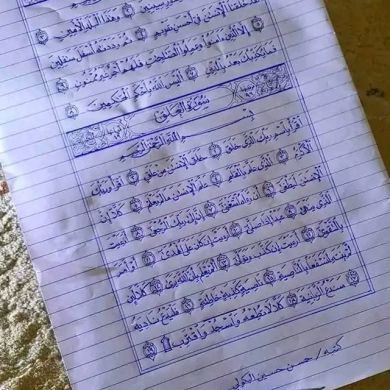 سينين
وهذا البلد الأمين لقد خلقنا الإنسن في أحسن تقويم
ثم رددنه أسفل سفلين إلا الذين ءامنوا وعملوا الصلحت فلهم أجر غير ممنون
فما يكذبك بعد بالدين أليس الله بأحكم الحكمين
سورة العلق
بسم الله الرحمن الرحيم
اقرأ باسم ربك الذي خلق خلق الإنسن من علق اقرأ وربك
الأكرم الذي علم بالقلم علم الإنسن ما لم يعلم كلا إن
الإنسن ليطغى أن رءاه استغنى إن إلى ربك الرجعى أرءيت
الذي ينهى عبدا إذا صلى أرءيت إن كان على الهدى أو أمر
بالتقوى أرءيت إن كذب وتولى ألم يعلم بأن الله يرى كلا لئن
لم ينته لنسفعا بالناصية ناصية كذبة خاطئة فليدع ناديه
سندع الزبانية كلا لا تطعه واسجد واقترب
كتبه / حسن حسين